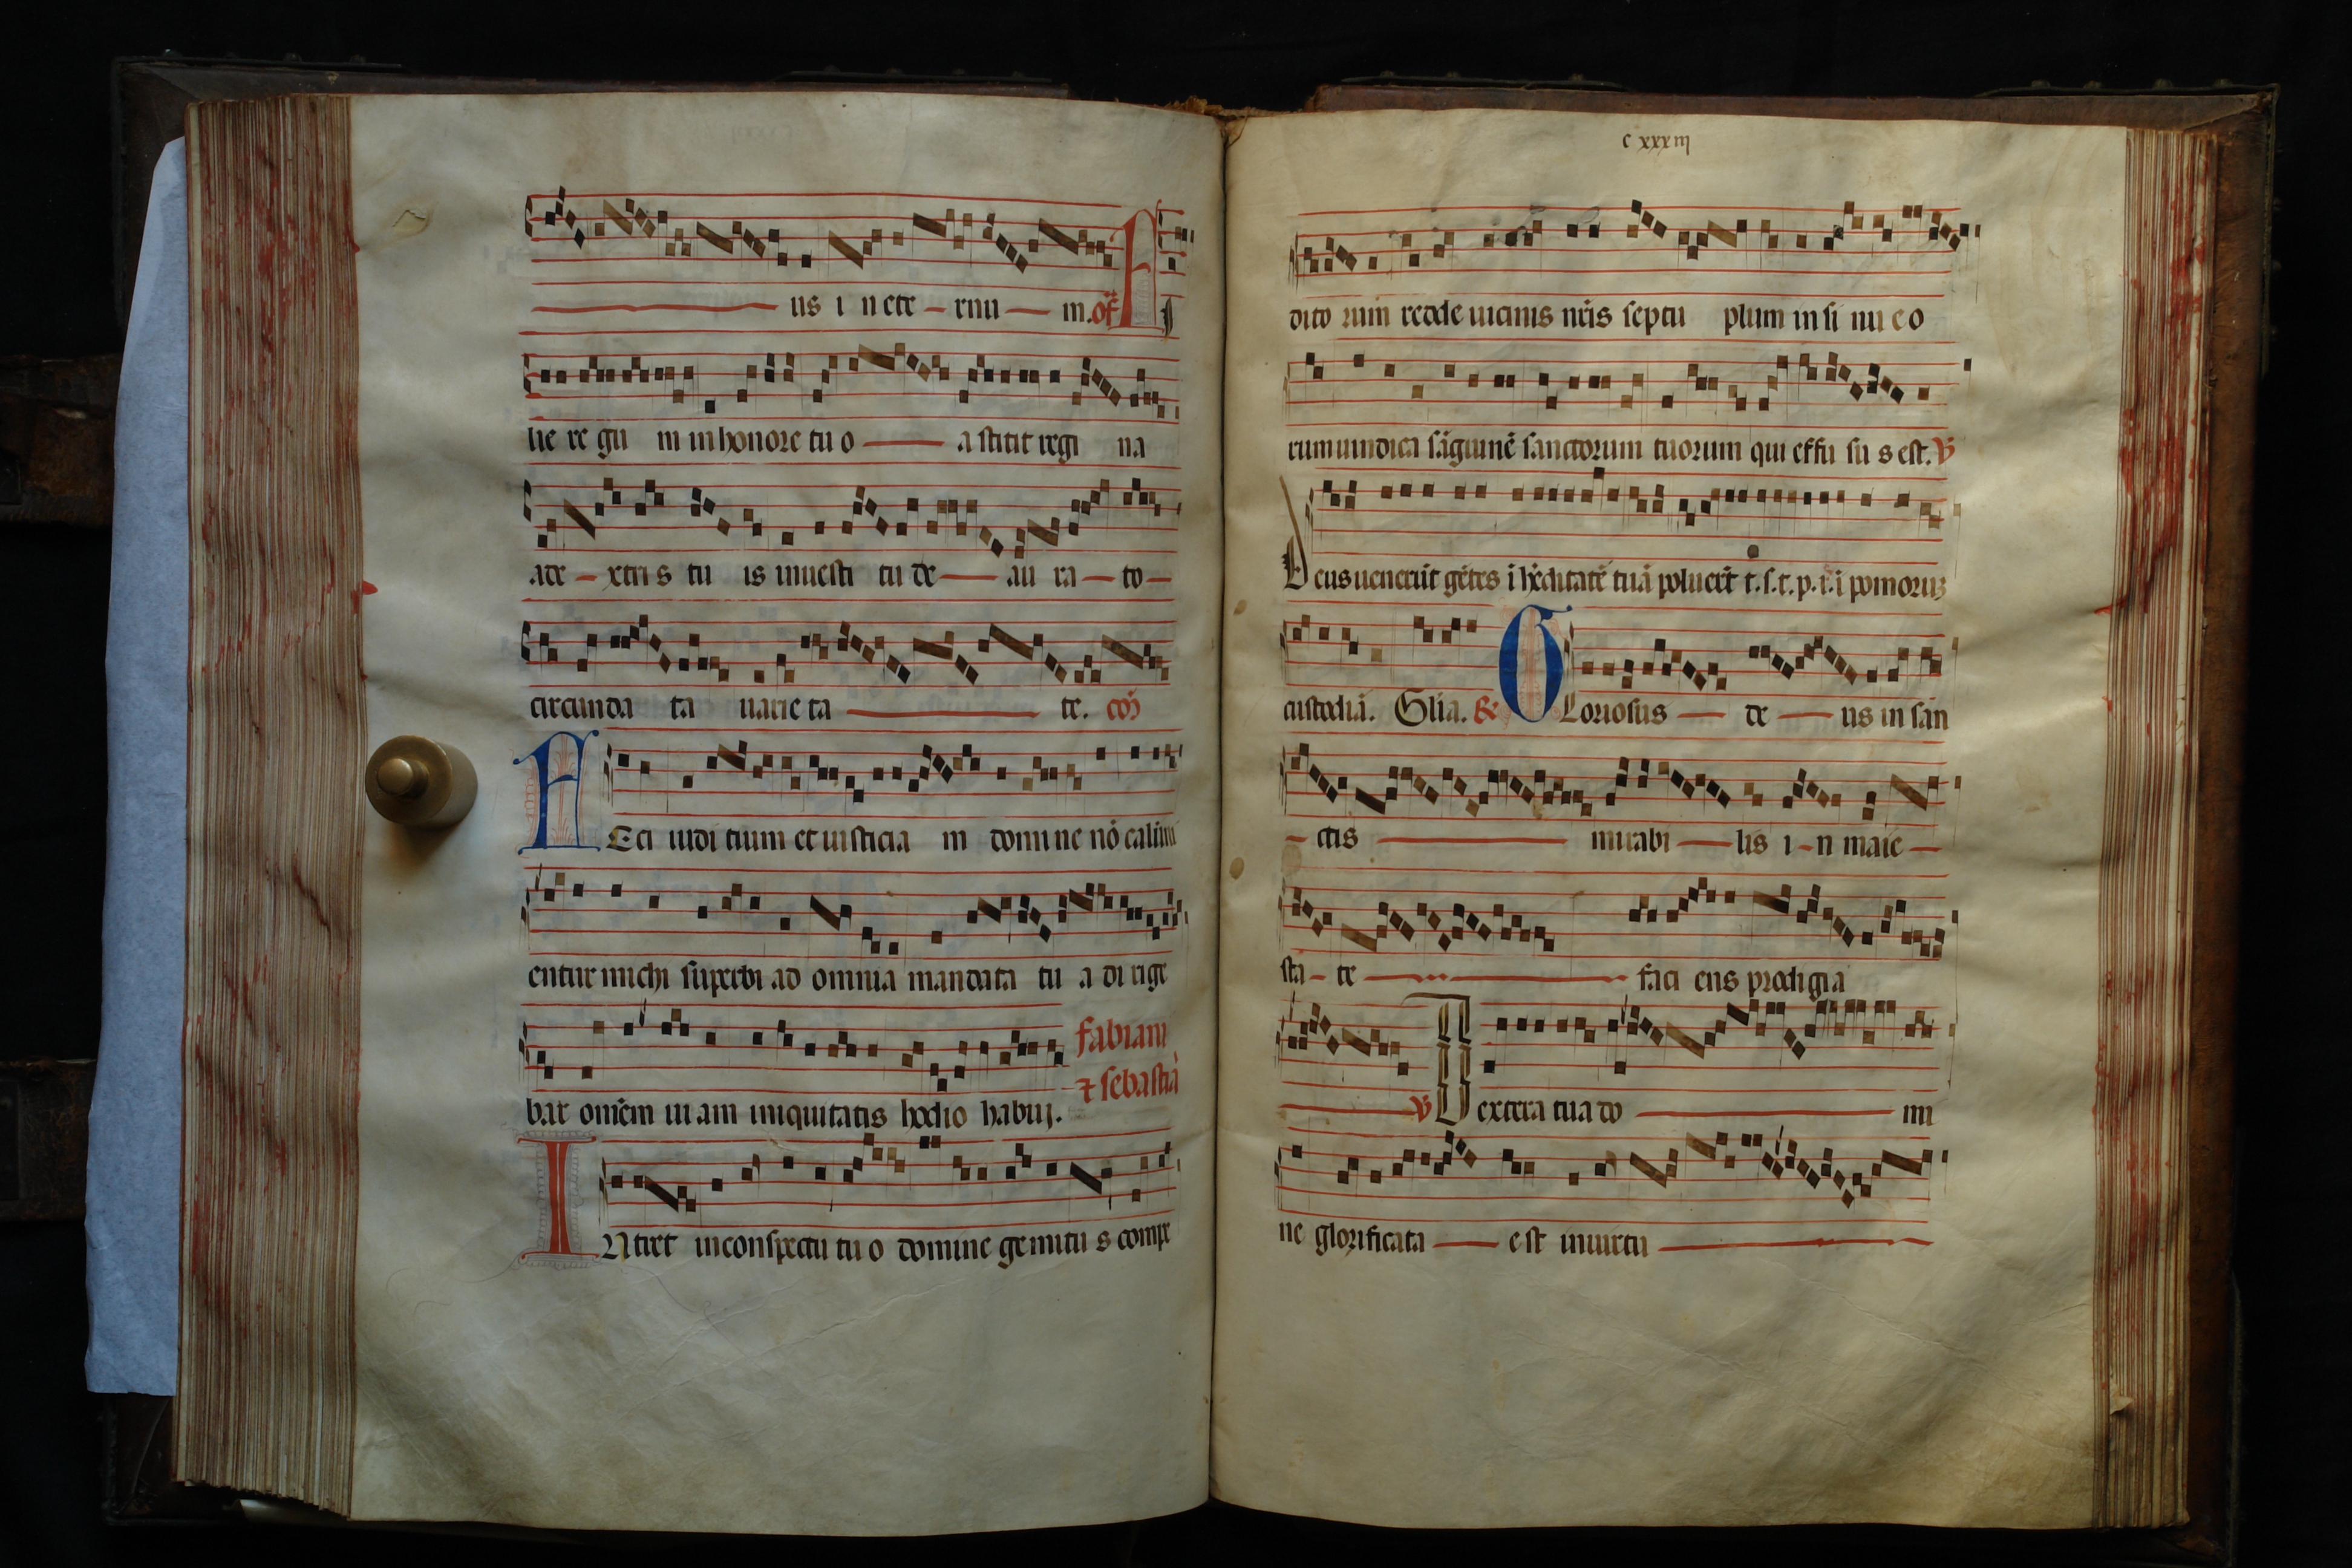 us i n ete rnu m. of F i
lie re gu m in honore tu o a stitit regi na
ade xtri s tu is inuesti tu de au ra to
circunda ta uarie ta te. cõ
F Eci iudi tium et iusticia m domi ne nõ calũni
entur michi superbi ad omnia mandata tu a di rige
bar omẽm ui am iniquitatis hodio habui.
fabiani
⁊ sebastiã
I Ntret in conspectu tu o domine gemitu s compe
c xxxiij
dito rum redde uicinis nr̃is septu plum in si nu e o
rum uindica sãguinẽ sanctorum tuorum qui effu su s est. ℣
Deus uenerũt gẽtes ĩ hẽditatẽ tuã poluerũt t.s.t.p.i.i pomoruʒ
custodiã. Glia. ℟ G Loriosus de us in san
ctis mirabi lis i n maie
sta te faci ens prodigia
℣ Dextera tua do mi
ne glorificata e st in uirtu